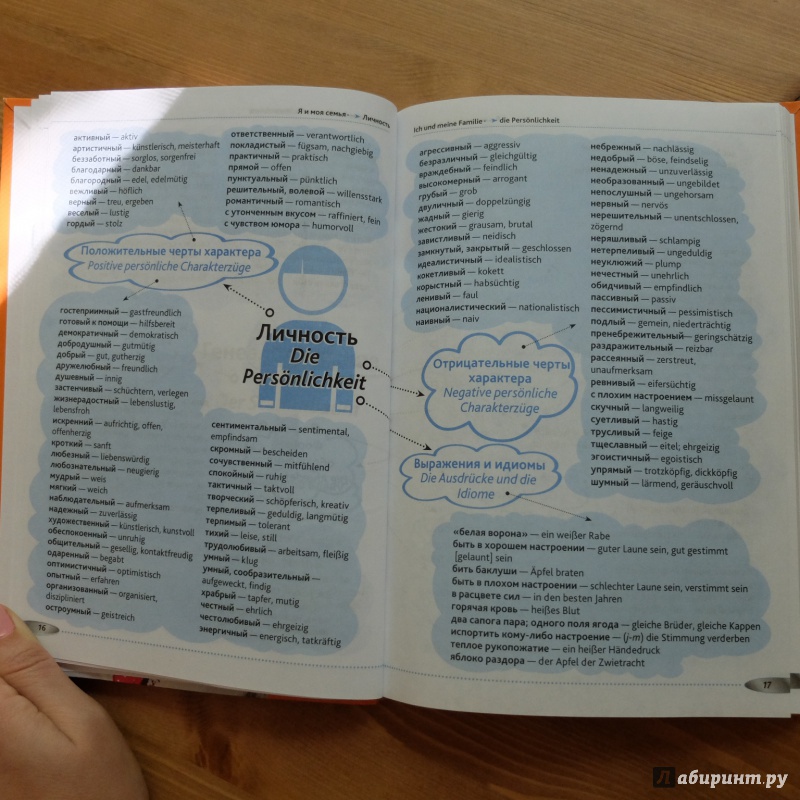 Я и моя семья · ➤ Личность
активный — aktiv
артистичный — künstlerisch, meisterhaft
беззаботный — sorglos, sorgenfrei
благодарный — dankbar
благородный — edel, edelmütig
вежливый — höflich
верный — treu, ergeben
веселый — lustig
гордый — stolz
ответственный — verantwortlich
покладистый — fügsam, nachgiebig
практичный — praktisch
прямой — offen
пунктуальный — pünktlich
решительный, волевой — willensstark
романтичный — romantisch
с утонченным вкусом — raffiniert, fein
с чувством юмора — humorvoll
Положительные черты характера
Positive persönliche Charakterzüge
Личность
Die
Persönlichkeit
гостеприимный — gastfreundlich
готовый к помощи — hilfsbereit
демократичный — demokratisch
добродушный — gutmütig
добрый — gut, gutherzig
дружелюбный — freundlich
душевный — innig
застенчивый — schüchtern, verlegen
жизнерадостный — lebenslustig,
lebensfroh
искренний — aufrichtig, offen,
offenherzig
кроткий — sanft
любезный — liebenswürdig
любознательный — neugierig
мудрый — weis
мягкий — weich
наблюдательный — aufmerksam
надежный — zuverlässig
художественный — künstlerisch, kunstvoll
обеспокоенный — unruhig
общительный — gesellig, kontaktfreudig
одаренный — begabt
оптимистичный — optimistisch
опытный — erfahren
организованный — organisiert,
diszipliniert
остроумный — geistreich
сентиментальный — sentimental,
empfindsam
скромный — bescheiden
сочувственный — mitfühlend
спокойный — ruhig
тактичный — taktvoll
творческий — schöpferisch, kreativ
терпеливый — geduldig, langmütig
терпимый — tolerant
тихий — leise, still
трудолюбивый — arbeitsam, fleißig
умный — klug
умный, сообразительный —
aufgeweckt, findig
храбрый — tapfer, mutig
честный — ehrlich
честолюбивый — ehrgeizig
энергичный — energisch, tatkräftig
16
Ich und meine Familie · ➤ die Persönlichkeit
агрессивный — aggressiv
безразличный — gleichgültig
враждебный — feindlich
высокомерный — arrogant
грубый — grob
двуличный — doppelzüngig
жадный — gierig
жестокий — grausam, brutal
завистливый — neidisch
замкнутый, закрытый — geschlossen
идеалистичный — idealistisch
кокетливый — kokett
корыстный — habsüchtig
ленивый — faul
националистический — nationalistisch
наивный — naiv
небрежный — nachlässig
недобрый — böse, feindselig
ненадежный — unzuverlässig
необразованный — ungebildet
непослушный — ungehorsam
нервный — nervös
нерешительный — unentschlossen,
zögernd
неряшливый — schlampig
нетерпеливый — ungeduldig
неуклюжий — plump
нечестный — unehrlich
обидчивый — empfindlich
пассивный — passiv
пессимистичный — pessimistisch
подлый — gemein, niederträchtig
пренебрежительный — geringschätzig
раздражительный — reizbar
рассеянный — zerstreut,
unaufmerksam
ревнивый — eifersüchtig
с плохим настроением — missgelaunt
скучный — langweilig
суетливый — hastig
трусливый — feige
тщеславный — eitel; ehrgeizig
эгоистичный — egoistisch
упрямый — trotzköpfig, dickköpfig
шумный — lärmend, geräuschvoll
Отрицательные черты
характера
Negative persönliche
Charakterzüge
Выражения и идиомы
Die Ausdrücke und die
Idiome
«белая ворона» — ein weißer Rabe
быть в хорошем настроении — guter Laune sein, gut gestimmt
[gelaunt] sein
бить баклуши — Äpfel braten
быть в плохом настроении — schlechter Laune sein, verstimmt sein
в расцвете сил — in den besten Jahren
горячая кровь — heißes Blut
два сапога пара; одного поля ягода — gleiche Brüder, gleiche Kappen
испортить кому-либо настроение — (j-m) die Stimmung verderben
теплое рукопожатие — ein heißer Händedruck
яблоко раздора — der Apfel der Zwietracht
17
Лабиринт.ру